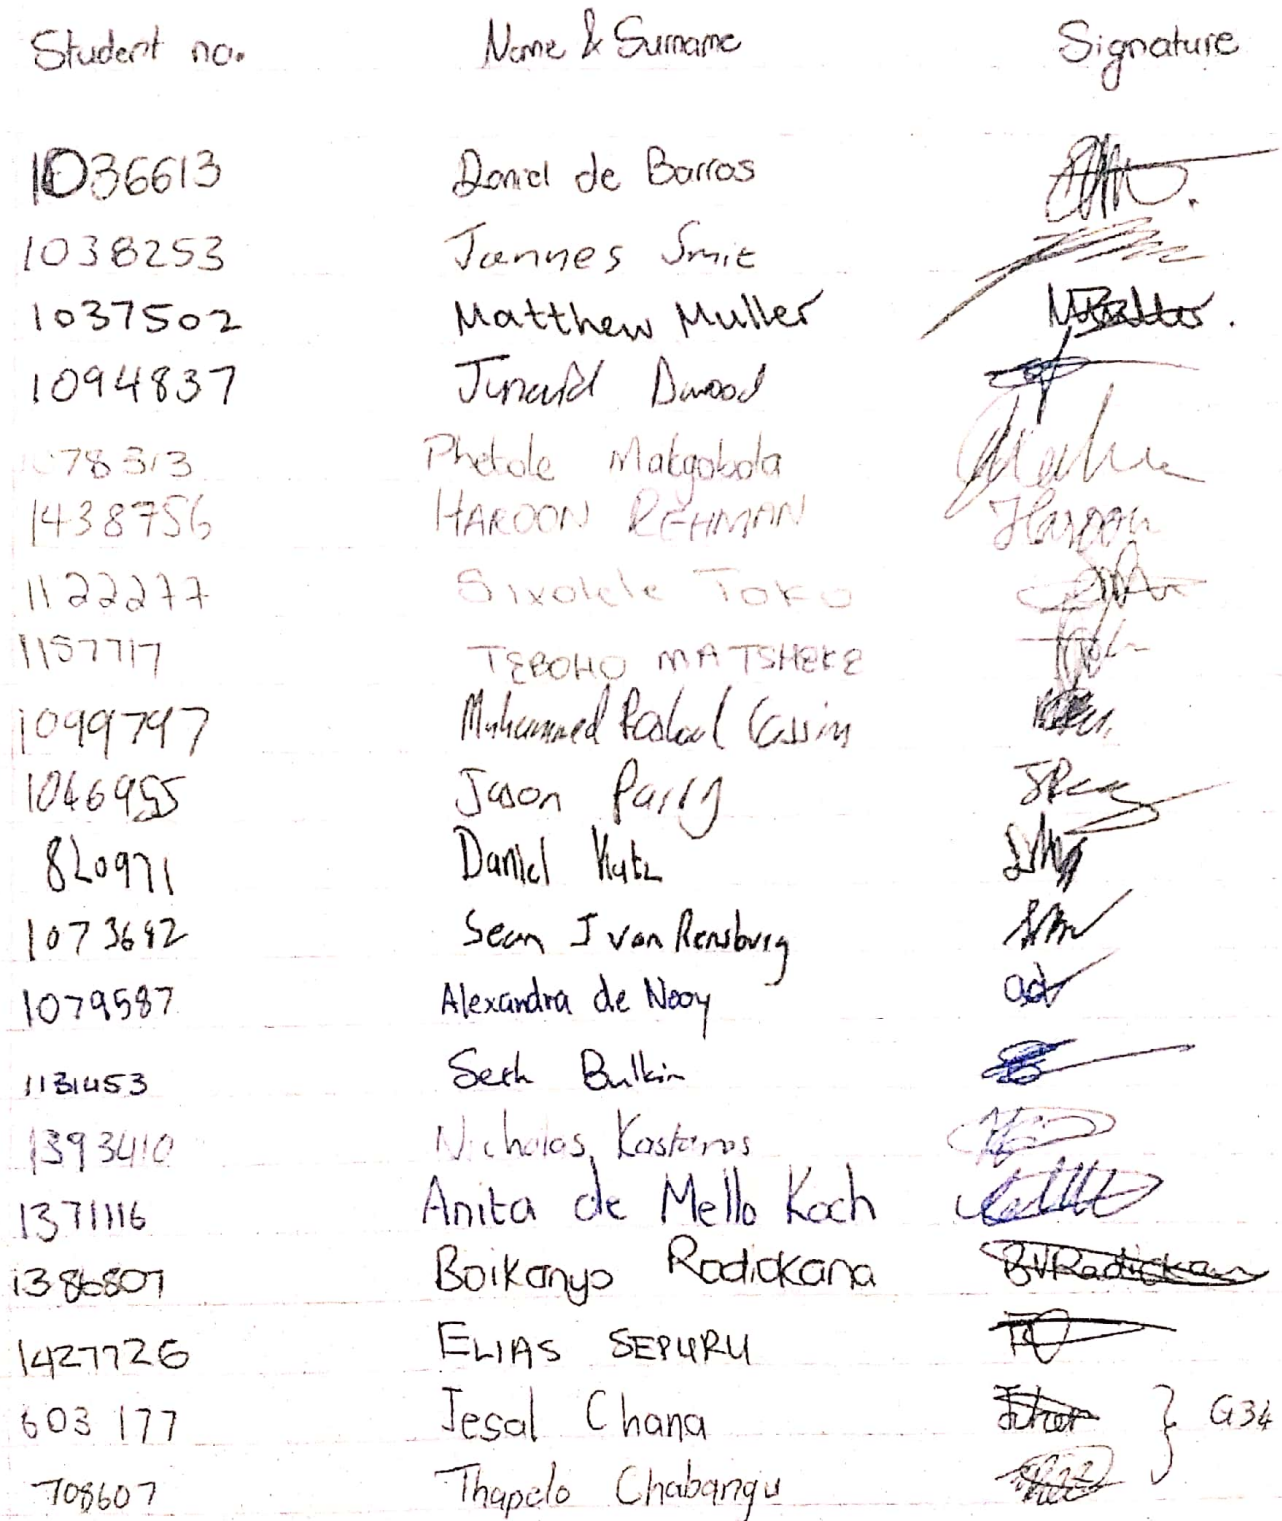 Student no. Name & Surname Signature
1036613 Daniel de Barros
1038253 Jannes Smit
1037502 Matthew Muller
1094837 Junaid Dawood
78313 Phetole Makgobola
1438756 HAROON REHMAN Haroon
1122277 Sixolele TOKO
1157717 TEBOHO MATSHEKE
1099797 Muhammed Cassim
1046955 Jason Parry
820971 Daniel Katz
1073682 Sean J van Rensburg
1079587 Alexandra de Nooy
1131453 Seth Bulkin
1393410 Nicholas Kastanos
1371116 Anita de Mello Koch
1386807 Boikanyo Radiokana
1427726 ELIAS SEPURU
603 177 Jesal Chana } G34
708607 Thapelo Chabangu